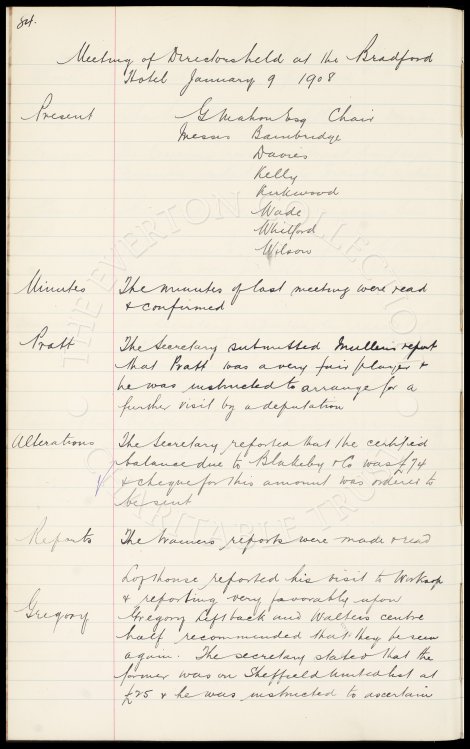 84.
Meeting of Directors held at the Bradford
Hotel January 9 1908
Present G Mahon Esq Chair
Messrs Bainbridge
Davies
Kelly
Kirkwood
Wade
Whitford
Wilson
Minutes The minutes of last meeting were read
& confirmed
Pratt The Secretary submitted Mullens report
that Pratt was a very fair player &
he was instructed to arrange for a
further visit by a deputation
Alterations The Secretary reported that the certified
balance due to Blakeby & Co was £74
& cheque for this amount was ordered to
be sent
Reports The trainers reports were made & read
Lofthouse reported his visit to Worksop
& reporting very favorably upon
Gregory Gregory left back and Walters centre
half recommended that they be seen
again. The secretary stated that the
former was on Sheffield United list at
£25 & he was instructed to ascertain
THE EVERTON COLLECTION
CHARITABLE TRUST